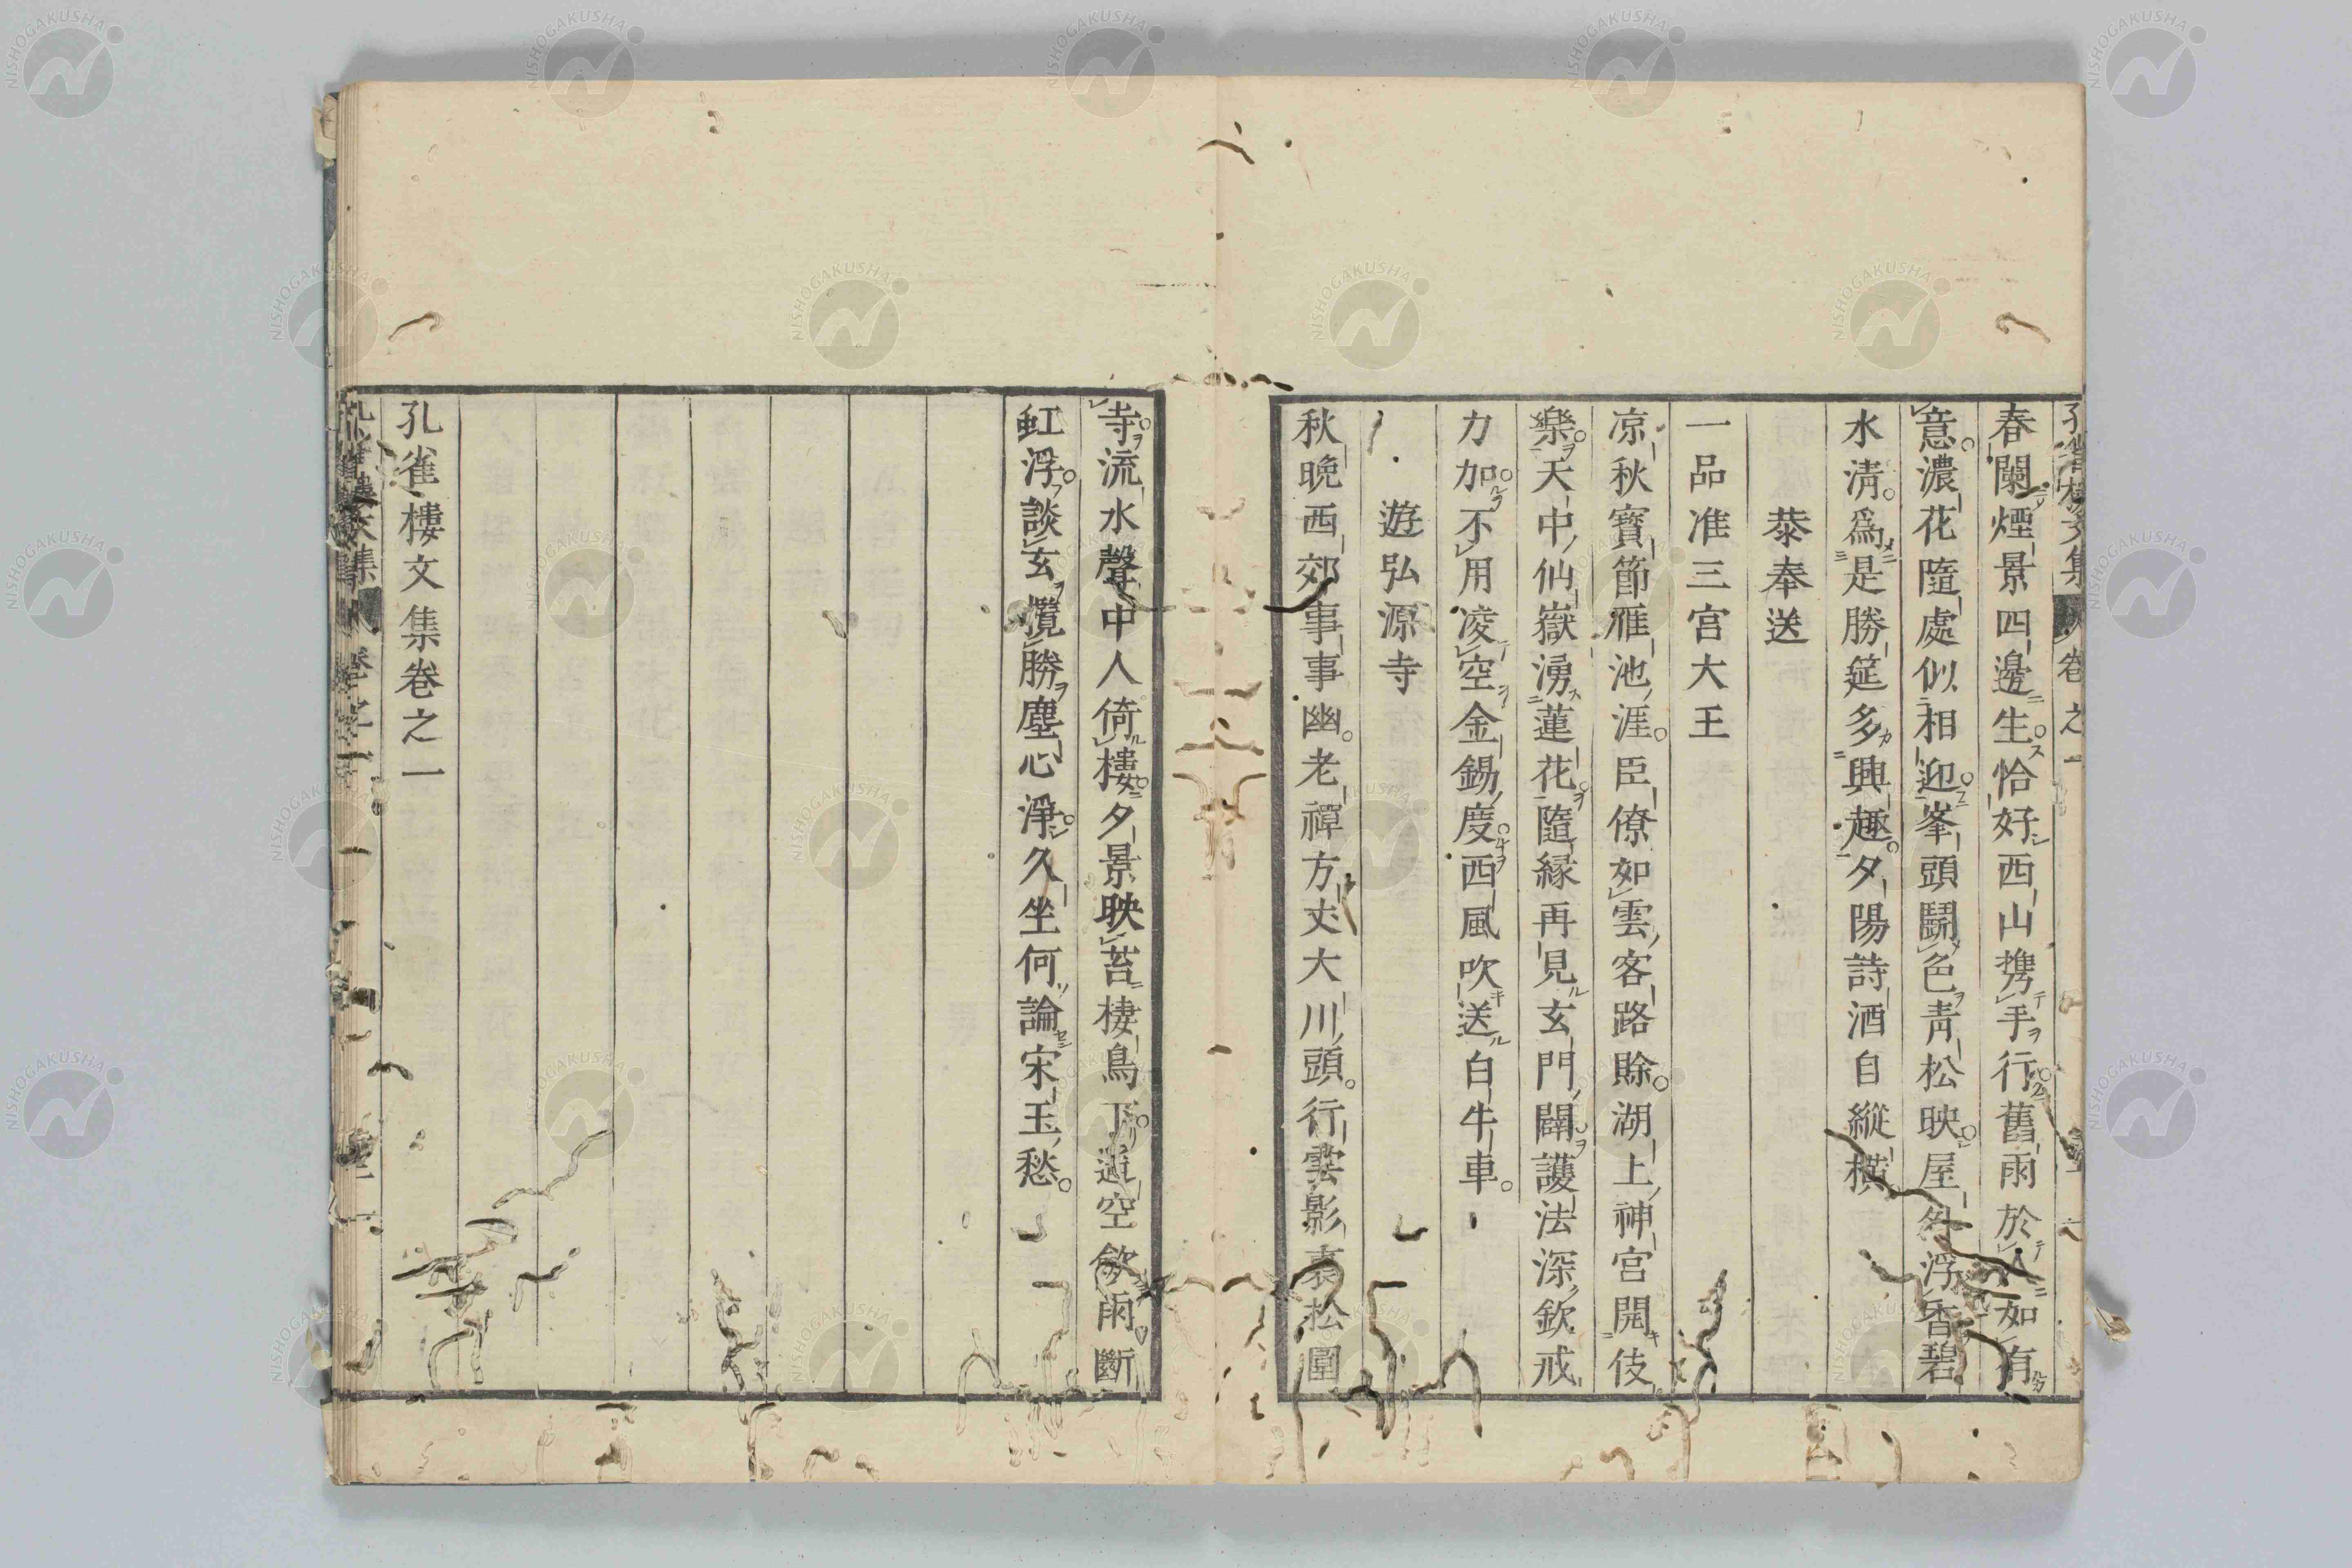 孔雀樓文集 卷之一
春闌煙景四邊生恰好西山携手行舊雨於人如有
意濃花隨處似相迎峯頭鬪色青松映屋外浮香碧
水清爲是勝筵多興趣夕陽詩酒自縱橫
恭奉送
一品准三宮大王
凉秋寶節雁池涯臣僚如雲客路賒湖上神宮開伎
樂天中仙嶽湧蓮花隨緣再見玄門闢護法深欽戒
力加不用凌空金錫度西風吹送白牛車
遊弘源寺
秋晩西郊事事幽老禪方丈大川頭行雲影裏松圍
寺流水聲中人倚樓夕景映苔棲鳥下遥空斂雨斷
虹浮談玄攬勝塵心淨久坐何論宋玉愁
孔雀樓文集卷之一
孔雀樓文集 卷之一